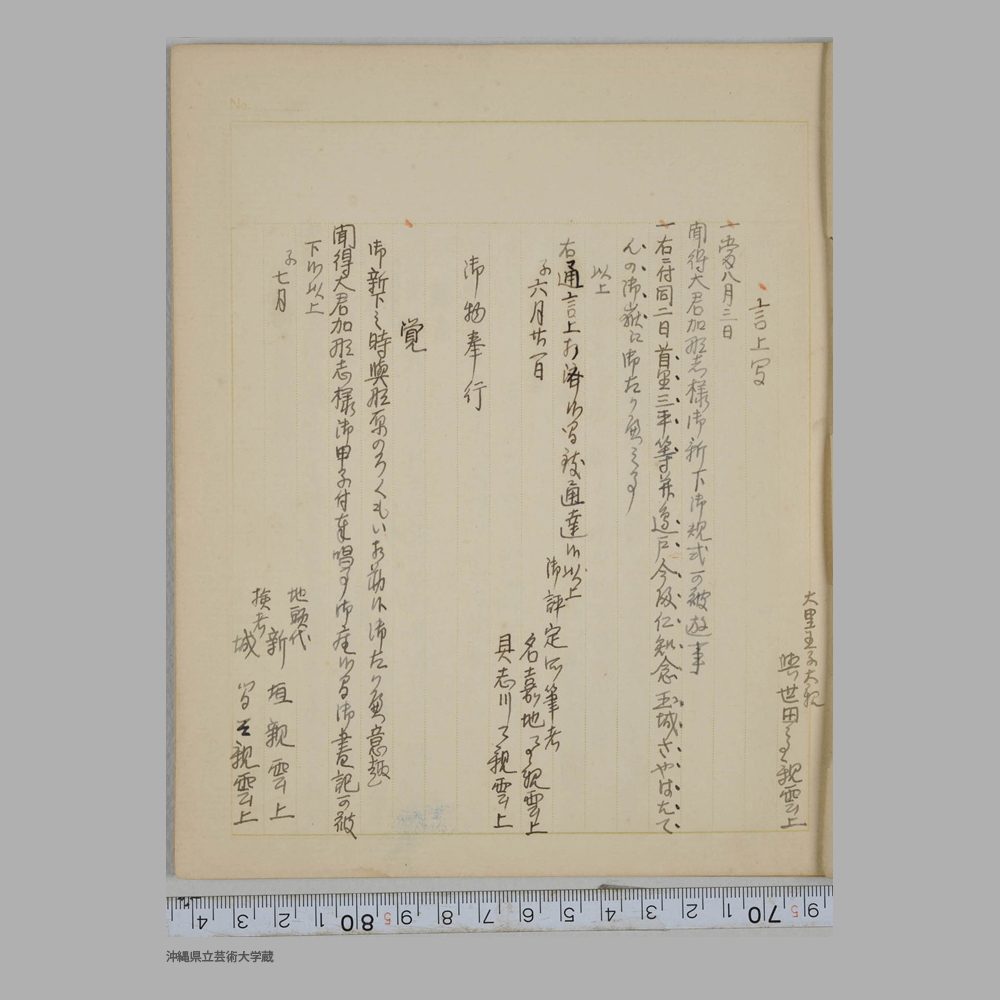 大里王子大親
與世田
親雲上
言上写
一
八月三日
聞得大君加那志様御新下御規式可被遊事
一右ニ付同二日首里三平等並邊戸今帰仁知念玉城さやはたけ
御嶽に御たか
以上
右通言上相済候間致通達候以上
子六月廿一日
御評定所筆者
名嘉地
親雲上
具志川
親雲上
御物奉行
覚
御新下之時與那原のろくもい相勤候御たか
意趣
聞得大君加那志様御甲子付奉唱事御座候間御書記可被
下候以上
子七月
地頭代
新垣親雲上
検者
城間
親雲上
No.
4 3 2 1 80 5 9 8 7 6 5 4 3 2 1 70 5 9
沖縄県立芸術大学蔵